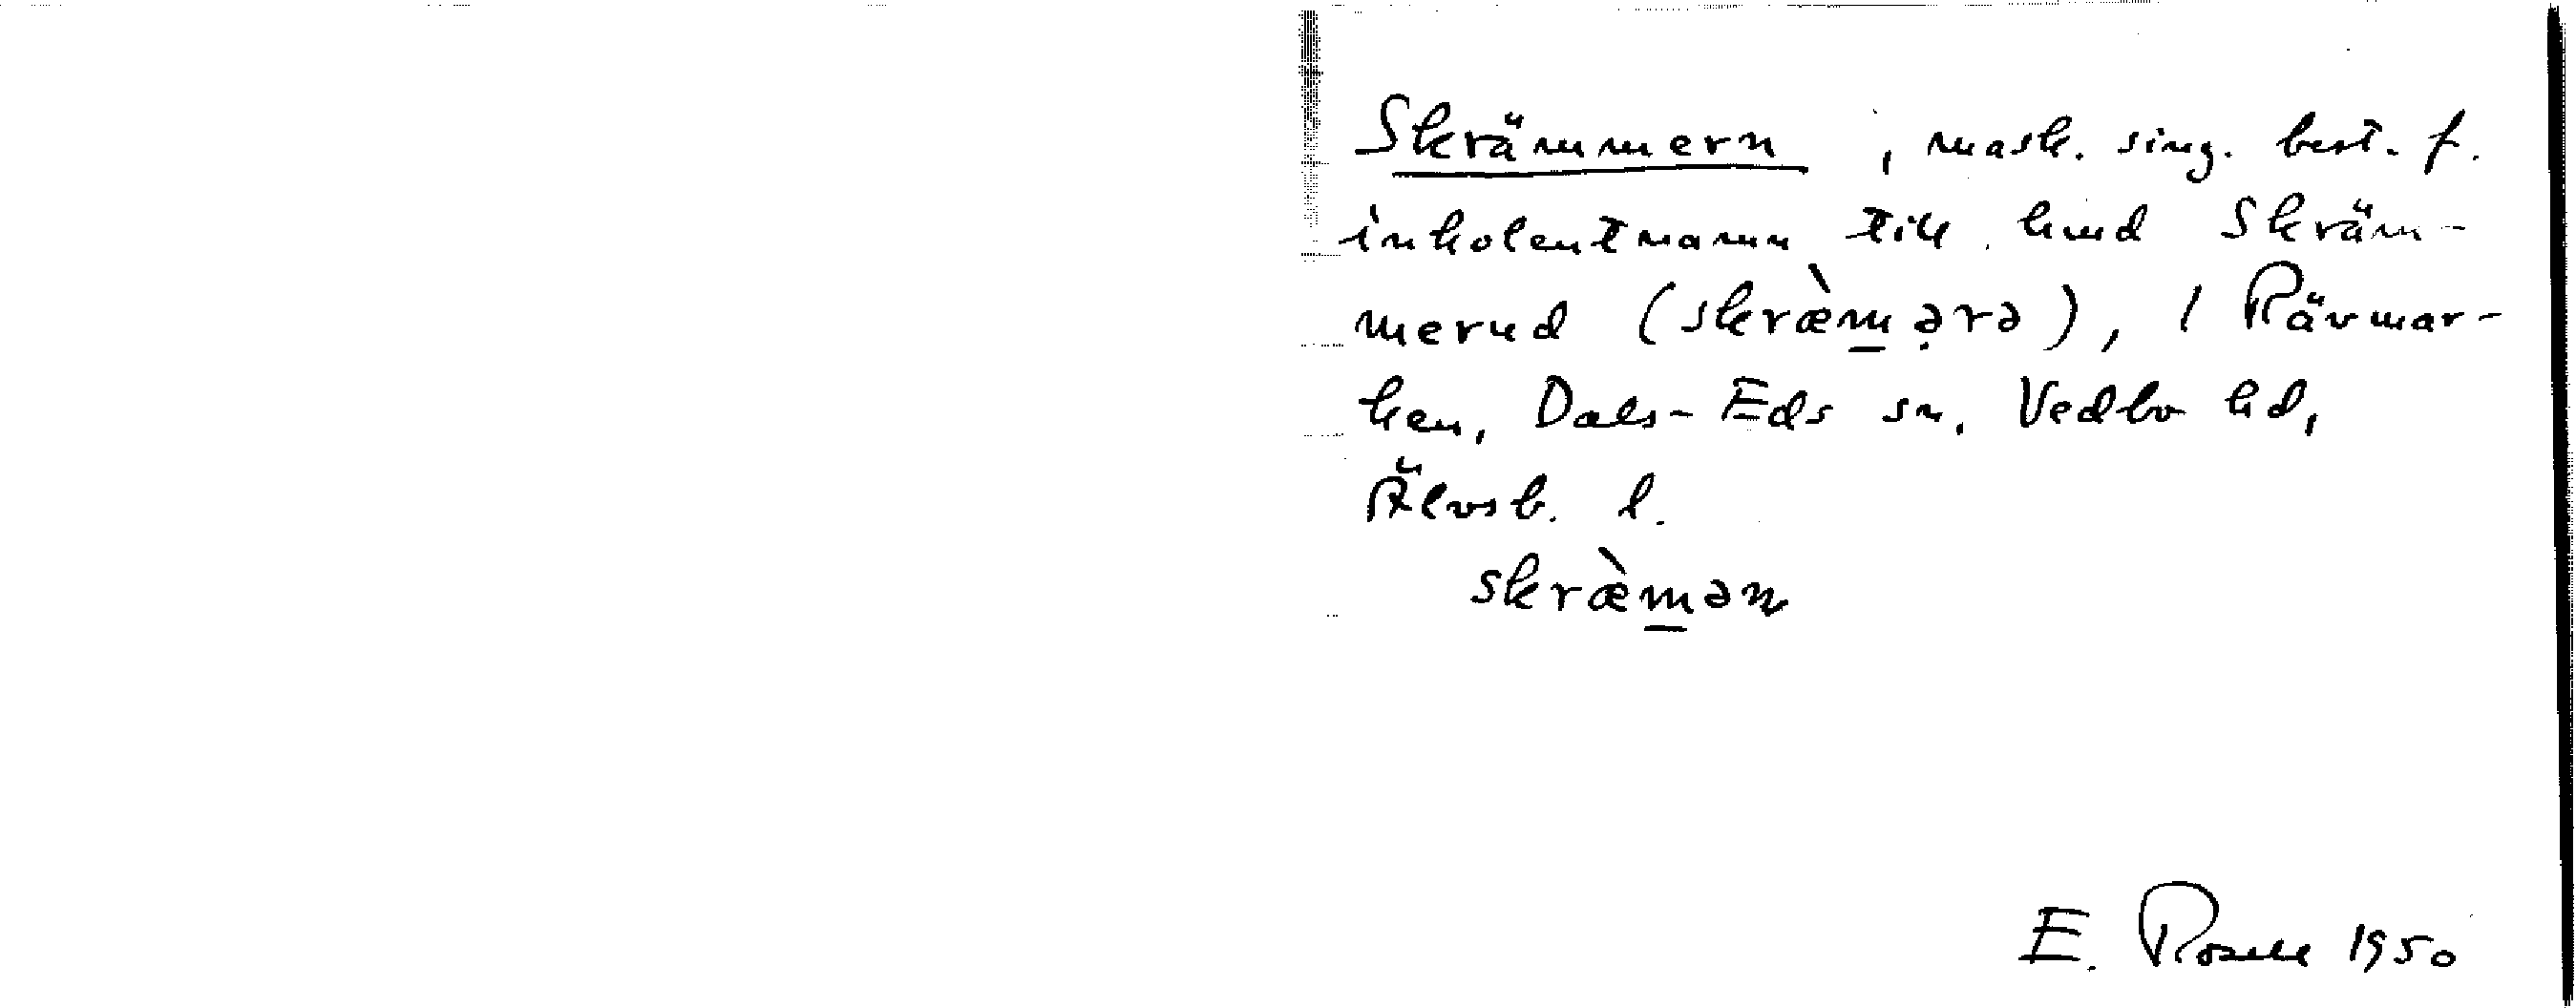 Skrämmern, mask. sing. best. f.
inkolentnamn till hmd Skräm-
merud (skræ̀m̲ə̣rə), 1 Rävmar-
ken, Dals-Eds sn. Vedbo hd,
Älvsb. l.
skræ̀m̲ən
E. Rosell 1950